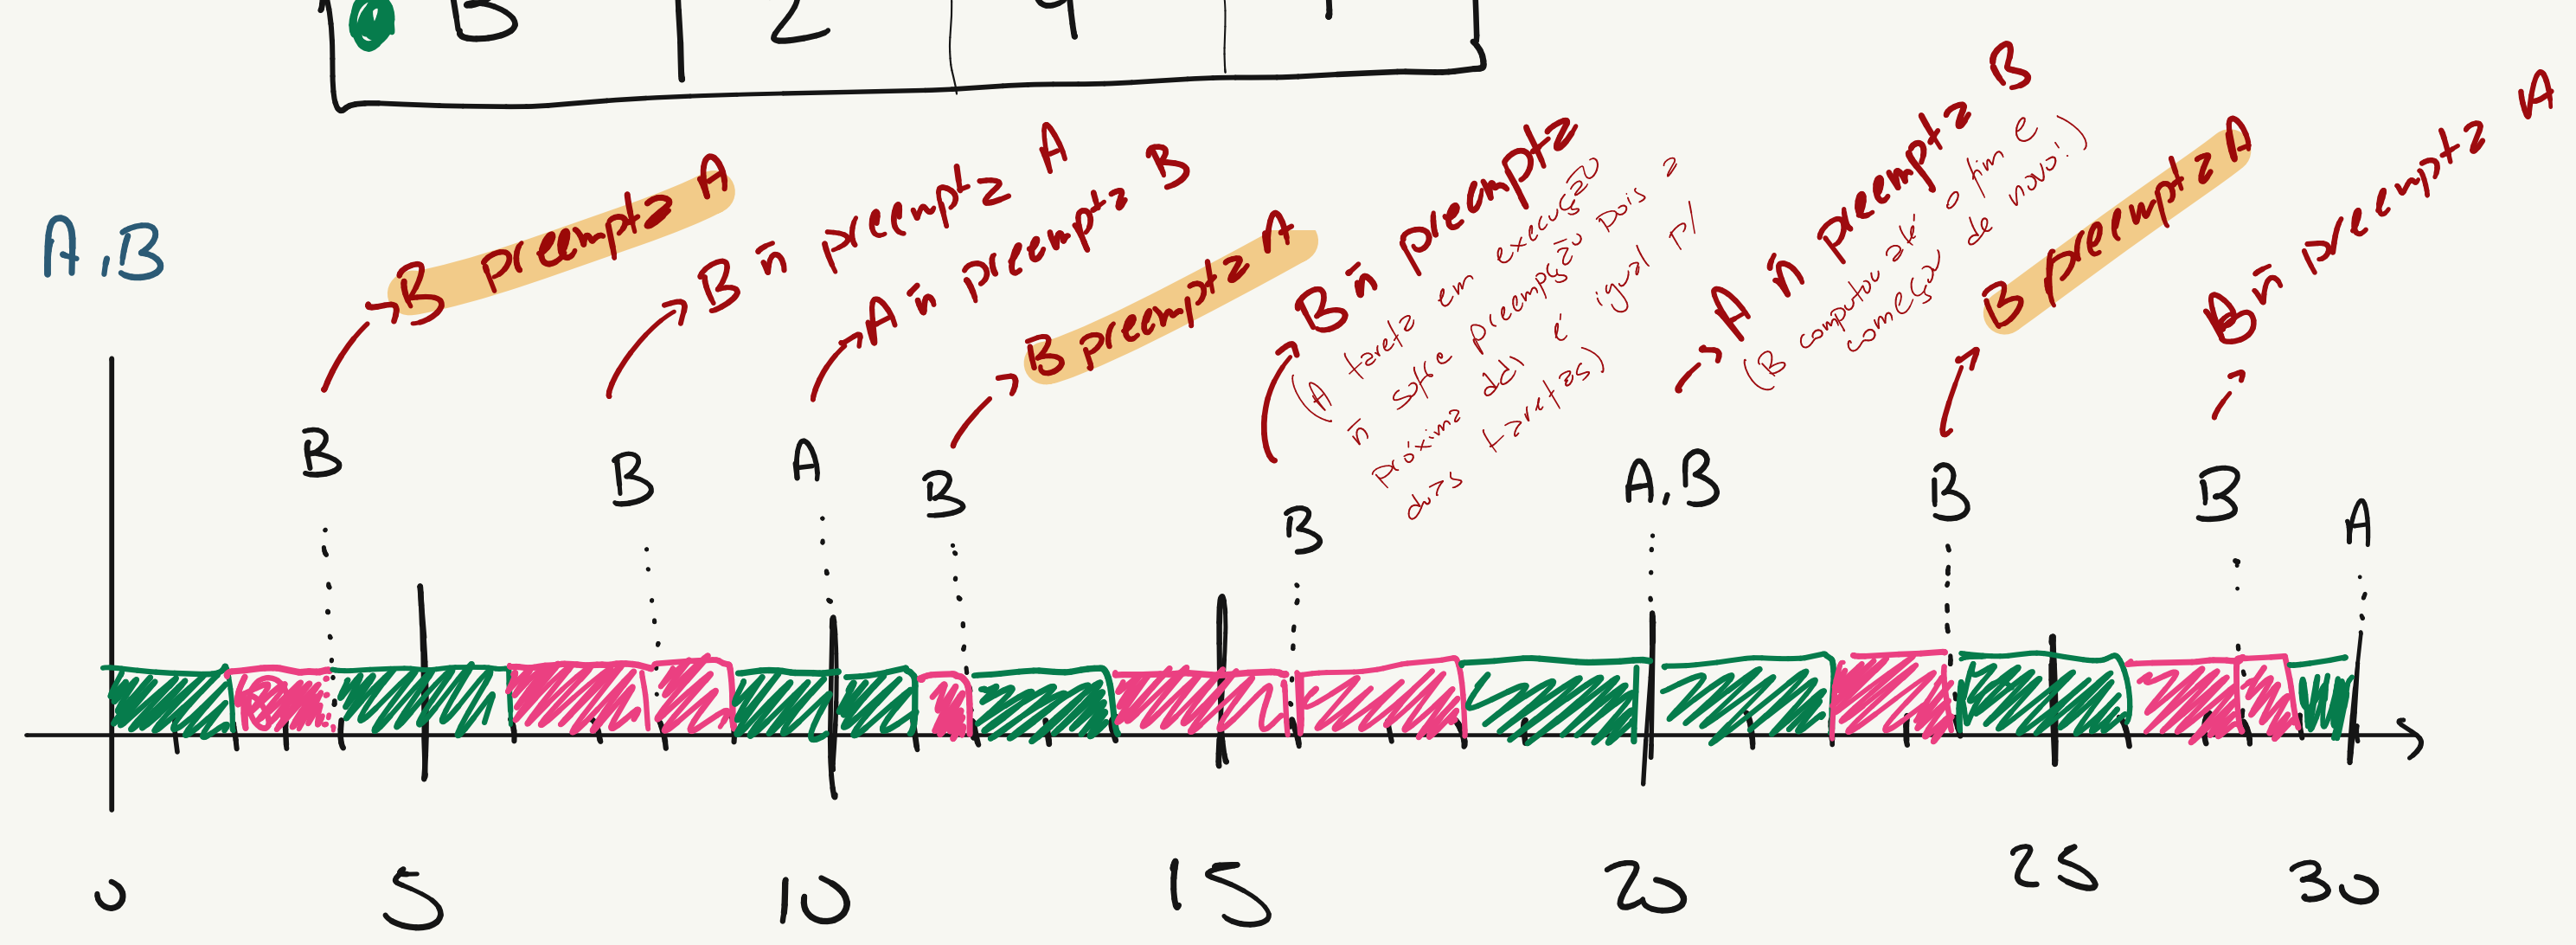 B 2 4
A,B
B preempta A
B ñ preempta A
A ñ preempta B
B preempta A
B ñ preempta
(A tarefa em execução
ñ sofre preempção pois a
próxima ddl é igual p/
duas tarefas)
A ñ preempta B
(B computou até o fim e
começou de novo!)
B preempta A
B ñ preempta A
B
B
A
B
B
A,B
B
B
A
0 5 10 15 20 25 30